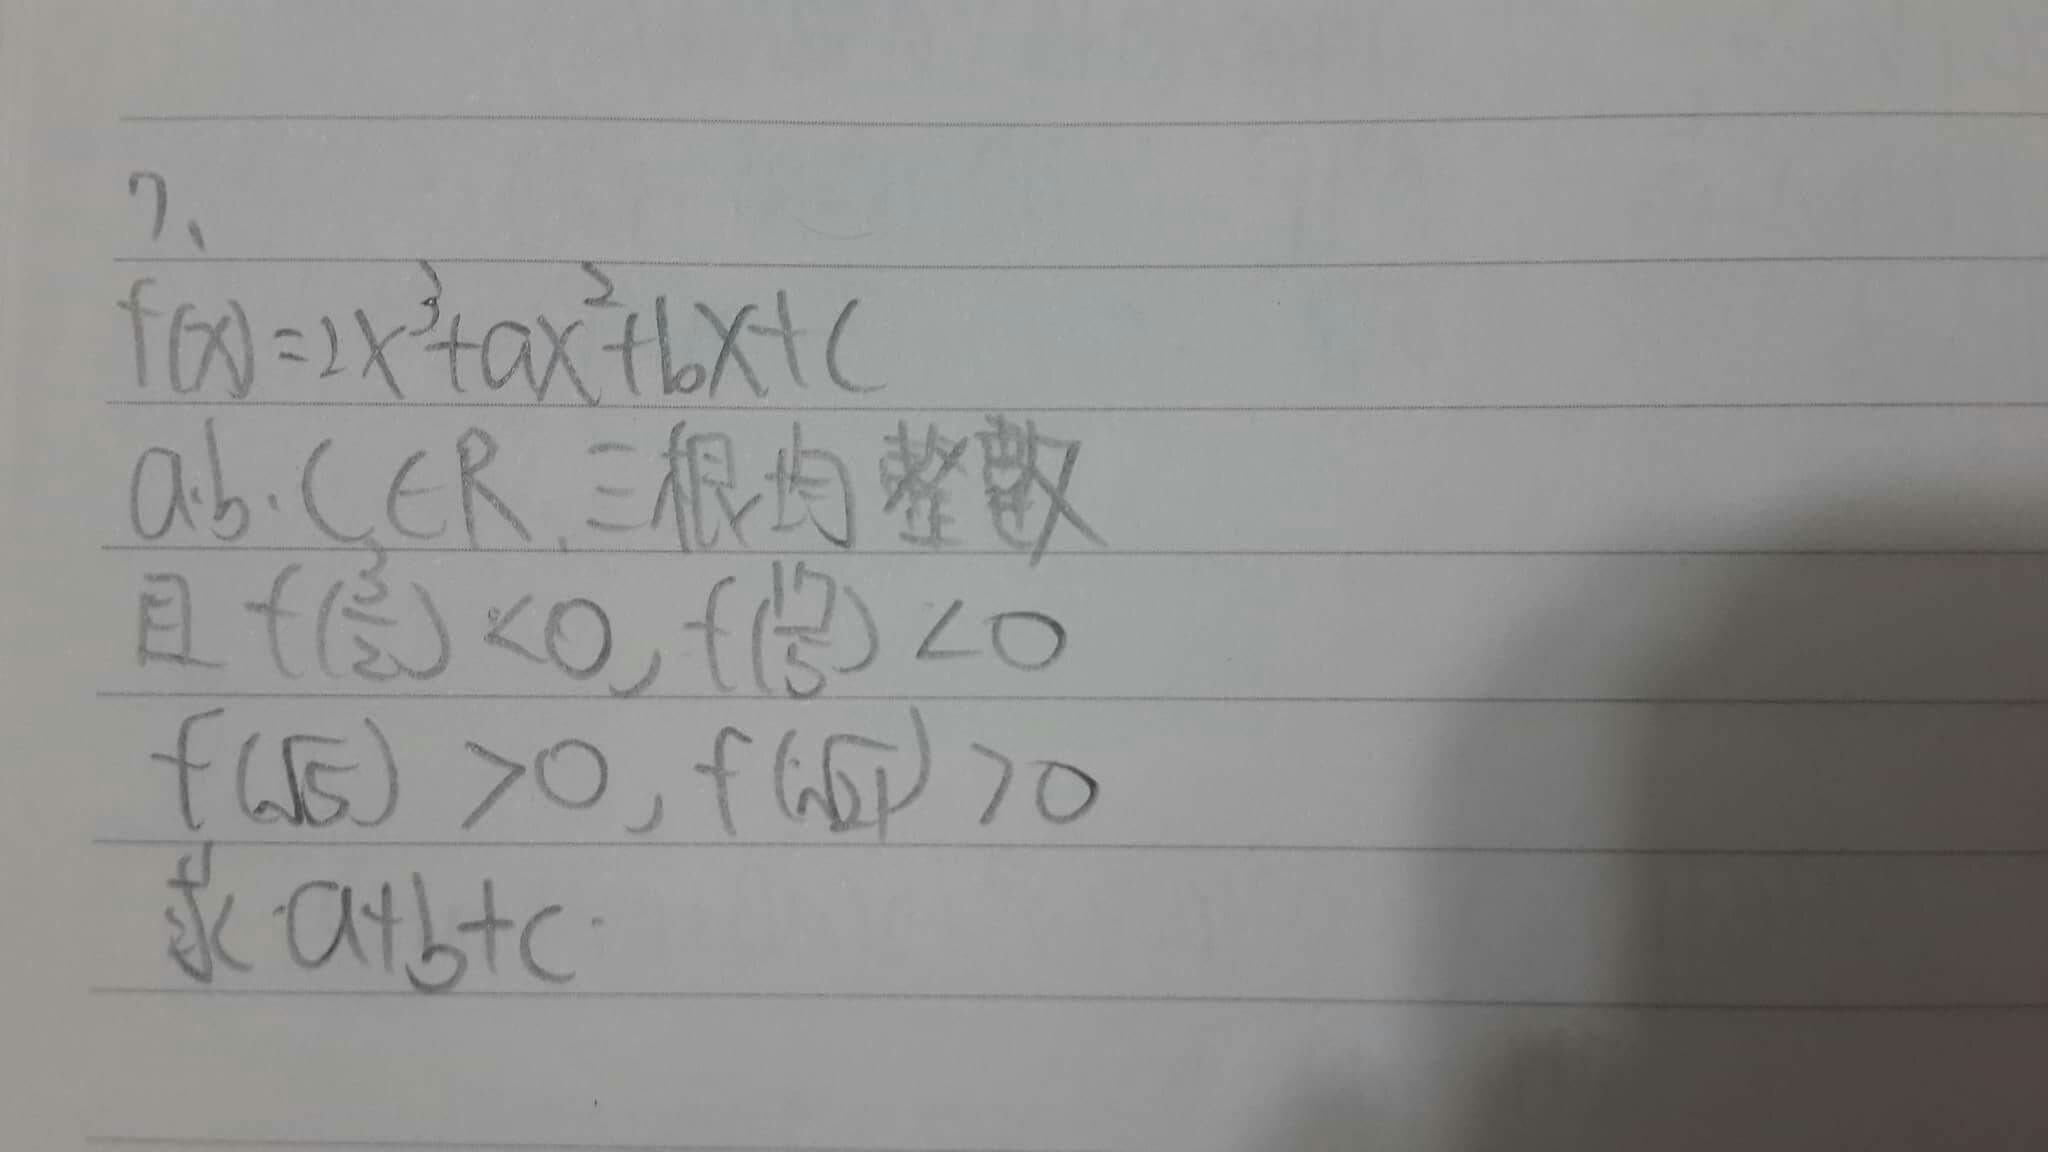 7、
f(x)=2x³+ax²+bx+c
a.b.c∈R.三根均整數
且f(3/2)<0,f(17/5)<0
f(√5)>0,f(√21)>0
求a+b+c.